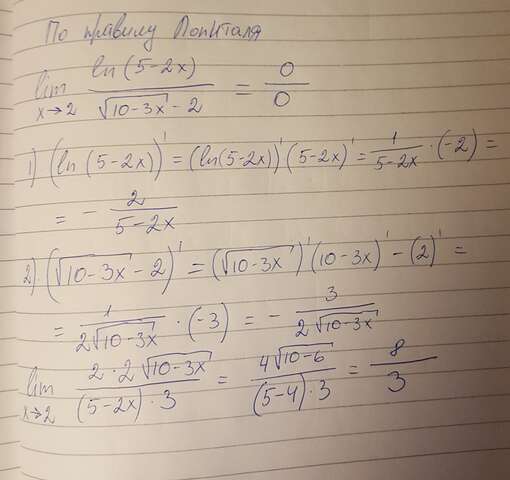 По правилу Лопиталя
lim x→2 ln(5-2x) / (√(10-3x) - 2) = 0/0
1) (ln(5-2x))' = (ln(5-2x))' (5-2x)' = 1/(5-2x) · (-2) =
= - 2/(5-2x)
2) (√(10-3x) - 2)' = (√(10-3x))' (10-3x)' - (2)' =
= 1/(2√(10-3x)) · (-3) = - 3/(2√(10-3x))
lim x→2 (2·2√(10-3x)) / ((5-2x)·3) = (4√(10-6)) / ((5-4)·3) = 8/3